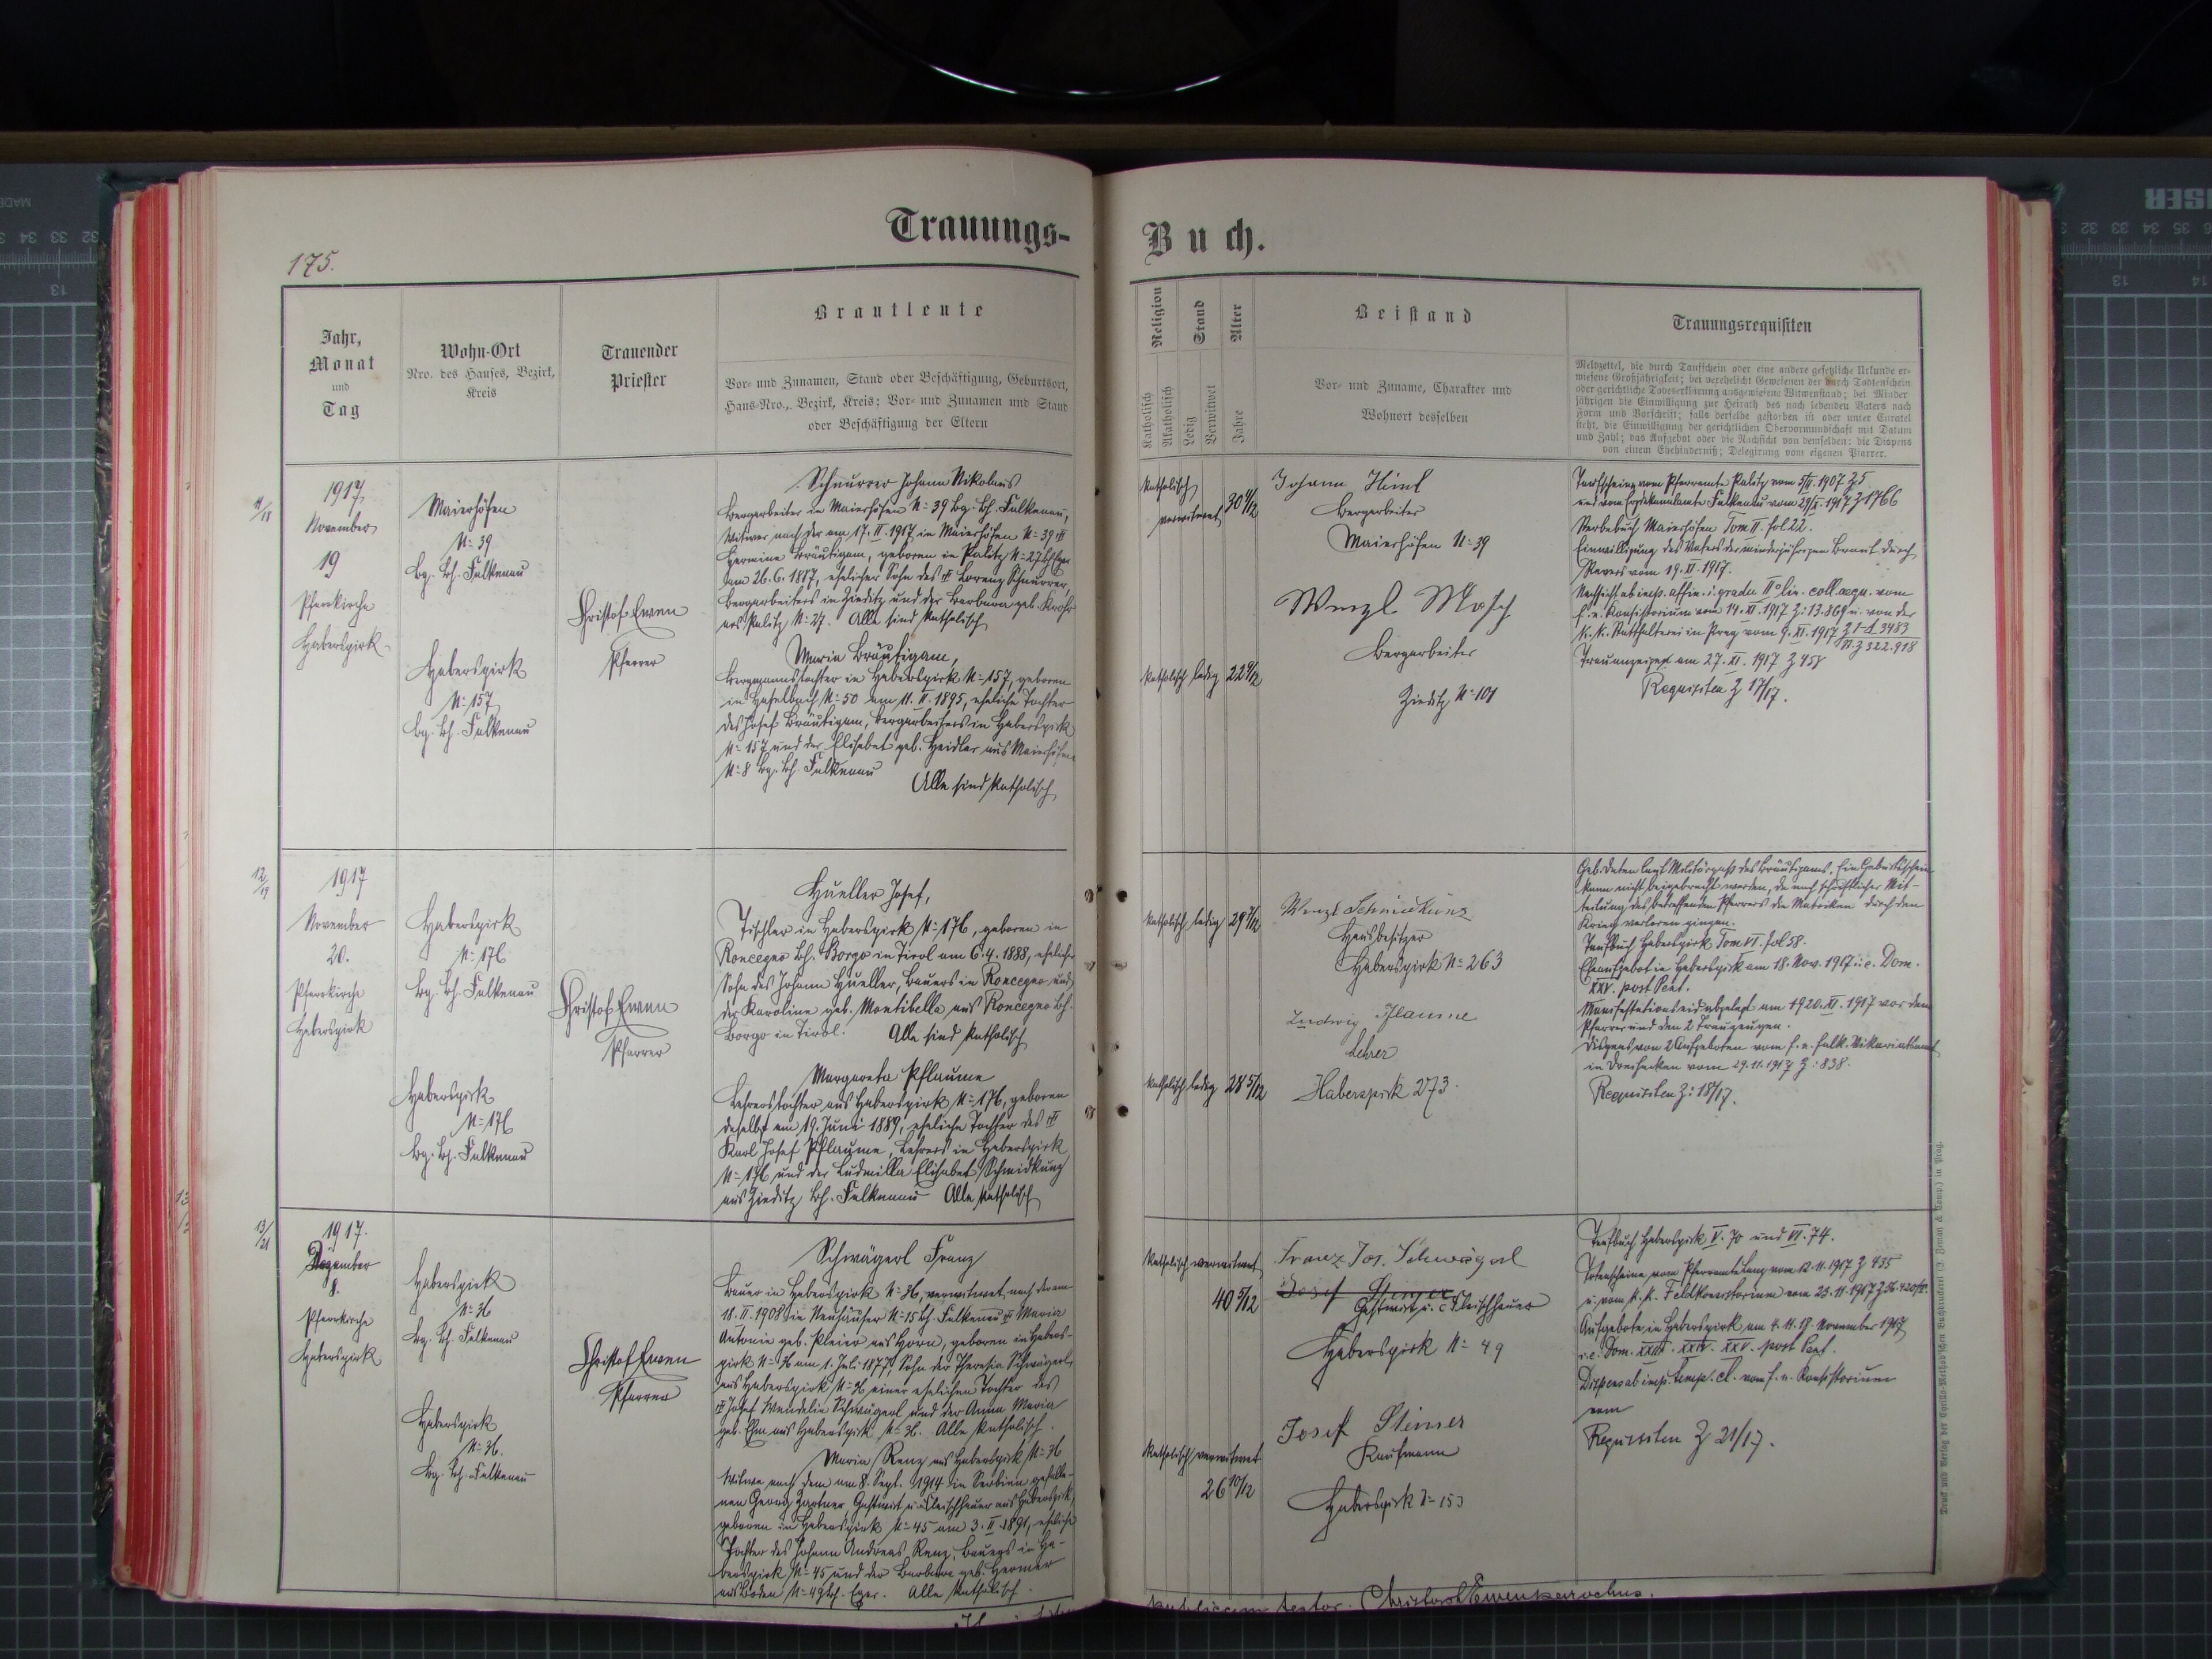 Trauungs-
Buch.
175.
Jahr,
Monat
und
Tag
Wohn-Ort
Nro. des Hauses, Bezirk,
Kreis
Trauender
Priester
Brautleute
Vor- und Zunamen, Stand oder Beschäftigung, Geburtsort,
Haus-Nro., Bezirk, Kreis; Vor- und Zunamen und Stand
oder Beschäftigung der Eltern
Religion
Katholisch
Akatholisch
Stand
Ledig
Verwitwet
Alter
Jahre
Beistand
Vor- und Zuname, Charakter und
Wohnort desselben
Trauungsrequisiten
Meldzettel, die durch Taufschein oder eine andere gesetzliche Urkunde er-
wiesene Großjährigkeit; bei verehelicht Gewesenen der durch Todtenschein
oder gerichtliche Todeserklärung ausgewiesene Witwenstand; bei Minder
jährigen die Einwilligung zur Heirath des noch lebenden Vaters nach
Form und Vorschrift; falls derselbe gestorben ist oder unter Curatel
steht, die Einwilligung der gerichtlichen Obervormundschaft mit Datum
und Zahl; das Aufgebot oder die Nachsicht von demselben; die Dispens
von einem Ehehinderniß; Delegirung vom eigenen Pfarrer.
11/18
1917
November
19
Pfarrkirche
Haberspirk
Maierhöfen
N= 39
Bg. Bh. Falkenau
Haberspirk
N= 157
Bg. Bh. Falkenau
Christof Ewen
Pfarrer
Schnurrer Johann Nikolaus
Bergarbeiter in Maierhöfen N= 39 Bg. Bh. Falkenau,
Witwer nach der am 17. II. 1917 in Maierhöfen N= 39
Hermine Bräutigam, geboren in Palitz N= 27 Bh. Eger
am 26. 6. 1887, ehelicher Sohn des Lorenz Schnurrer,
Bergarbeiters in Zieditz und der Barbara geb.
aus Palitz N= 27. Alle sind katholisch
Maria Bräutigam,
Bergmannstochter in Haberspirk N= 157, geboren
in Haselbach N= 50 am 11. II. 1895, eheliche Tochter
des Josef Bräutigam, Bergarbeiters in Haberspirk
N= 157 und der Elisabet geb. Heidler aus Maierhöfen
N= 8 Bg. Bh. Falkenau
Alle sind katholisch
katholisch verwitwet 30
katholisch ledig 22
Johann Heinl
Bergarbeiter
Maierhöfen N= 39
Wenzl Mosch
Bergarbeiter
Zieditz N= 101
Taufscheine vom Pfarramte Palitz vom 5/II. 1907 Z 5
und vom Erzdekanalamte Falkenau vom 1917 Z 1766
Sterbebuch Maierhöfen Tom II. fol 22.
Einwilligung des Vaters der minderjährigen Braut durch
Revers vom 19. XI. 1917.
Nachsicht ab imp. affin. i. gradu II° lin. coll. aequ. vom
f. e. Konsistorium vom 14. XI. 1917 Z: 13.869 u. von der
k. k. Statthalterei in Prag vom 9. XI. 1917 Z 3483
N. Z 322.918
Trauanzeige am 27. XI. 1917 Z 458
Requisiten Z 17/17.
12/19
1917
November
20.
Pfarrkirche
Haberspirk
Haberspirk
N= 176
Bg. Bh. Falkenau
Haberspirk
N= 176
Bg. Bh. Falkenau
Christof Ewen
Pfarrer
Hueller Josef,
Tischler in Haberspirk N= 176, geboren in
Roncegno Bh. Borgo in Tirol am 6. 4. 1888, ehelicher
Sohn des Johann Hueller, Bauers in Roncegno und
der Karoline geb. Montibella aus Roncegno Bh.
Borgo in Tirol. Alle sind katholisch
Margareta Pflaume
Lehrerstochter aus Haberspirk N= 176, geboren
daselbst am 19. Juni 1889, eheliche Tochter des
Karl Josef Pflaume, Lehrers in Haberspirk
N= 176 und der Ludmilla Elisabet Schmidkunz
aus Zieditz Bh. Falkenau Alle katholisch
katholisch ledig 29 7/12
katholisch ledig 28 5/12
Wenzl Schmidkunz
Hausbesitzer
Haberspirk N= 263
Ludwig Pflaume
Lehrer
Haberspirk 273.
Geb. Daten laut Militärpaß des Bräutigams. Ein Geburtsschein
kann nicht beigebracht werden, da nach schriftlicher Mit-
teilung des betreffenden Pfarrers die Matriken durch den
Krieg verloren gingen.
Taufbuch Haberspirk Tom VI. fol 58.
Eheaufgebot in Haberspirk am 18. Nov. 1917 i. e. Dom.
XXV. post Pent.
Manifestationseid abgelegt am 20. XI. 1917 vor dem
Pfarrer und den 2 Trauzeugen.
Dispens von 2 Aufgeboten vom f. e. Falk. Vikariatsamt
in Dreihacken vom 19. 11. 1917 Z: 838.
Requisiten Z: 18/17.
13/21
1917.
Dezember
8.
Pfarrkirche
Haberspirk
Haberspirk
N= 36
Bg. Bh. Falkenau
Haberspirk
N= 36.
Bg. Bh. Falkenau
Christof Ewen
Pfarrer
Schwägerl Franz
Bauer in Haberspirk N= 36, verwitwet nach der am
18. II. 1908 in Neuhäuser N= 15 Bh. Falkenau Maria
Antonia geb. Pleier aus Horn, geboren in Habers-
pirk N= 36 am 1. Juli 1877, Sohn der Theresia Schwägerl
aus Haberspirk N= 36 einer ehelichen Tochter des
Josef Wendelin Schwägerl und der Anna Maria
geb. aus Haberspirk N= 36. Alle katholisch.
Maria Renz aus Haberspirk N= 36
Witwe nach dem am 8. Sept. 1914 in Serbien gefalle-
nen Georg Gartner Gastwirt u. Fleischhauer aus Haberspirk,
geboren in Haberspirk N= 45 am 3. II. 1891, eheliche
Tochter des Johann Andreas Renz, Bauers in Ha-
berspirk N= 45 und der Barbara geb. Hermer
aus Boden N= 49 Bh. Eger. Alle katholisch.
katholisch verwitwet
40 5/12
katholisch verwitwet
26 10/12
Franz Jos. Schwägerl
Josef Steiner
Gastwirt u. Fleischhauer
Haberspirk N= 49
Josef Steiner
Kaufmann
Haberspirk N= 153
Taufbuch Haberspirk V. 70 und VI. 74.
Totenscheine vom Pfarramte Lang vom 12. 11. 1917 Z 935
u. vom k. k. Feldkonsistorium vom 23. 11. 1917
Aufgebote in Haberspirk am 4. 11. 18. November 1917
i. e. Dom. XXIII. XXIV. XXV. post Pent.
Dispens ab imp. temp. cl. vom f. e. Konsistorium
vom
Requisiten Z 21/17.
Druck und Verlag der Cyrillo-Method'schen Buchdruckerei (J. Zeman & Comp.) in Prag.